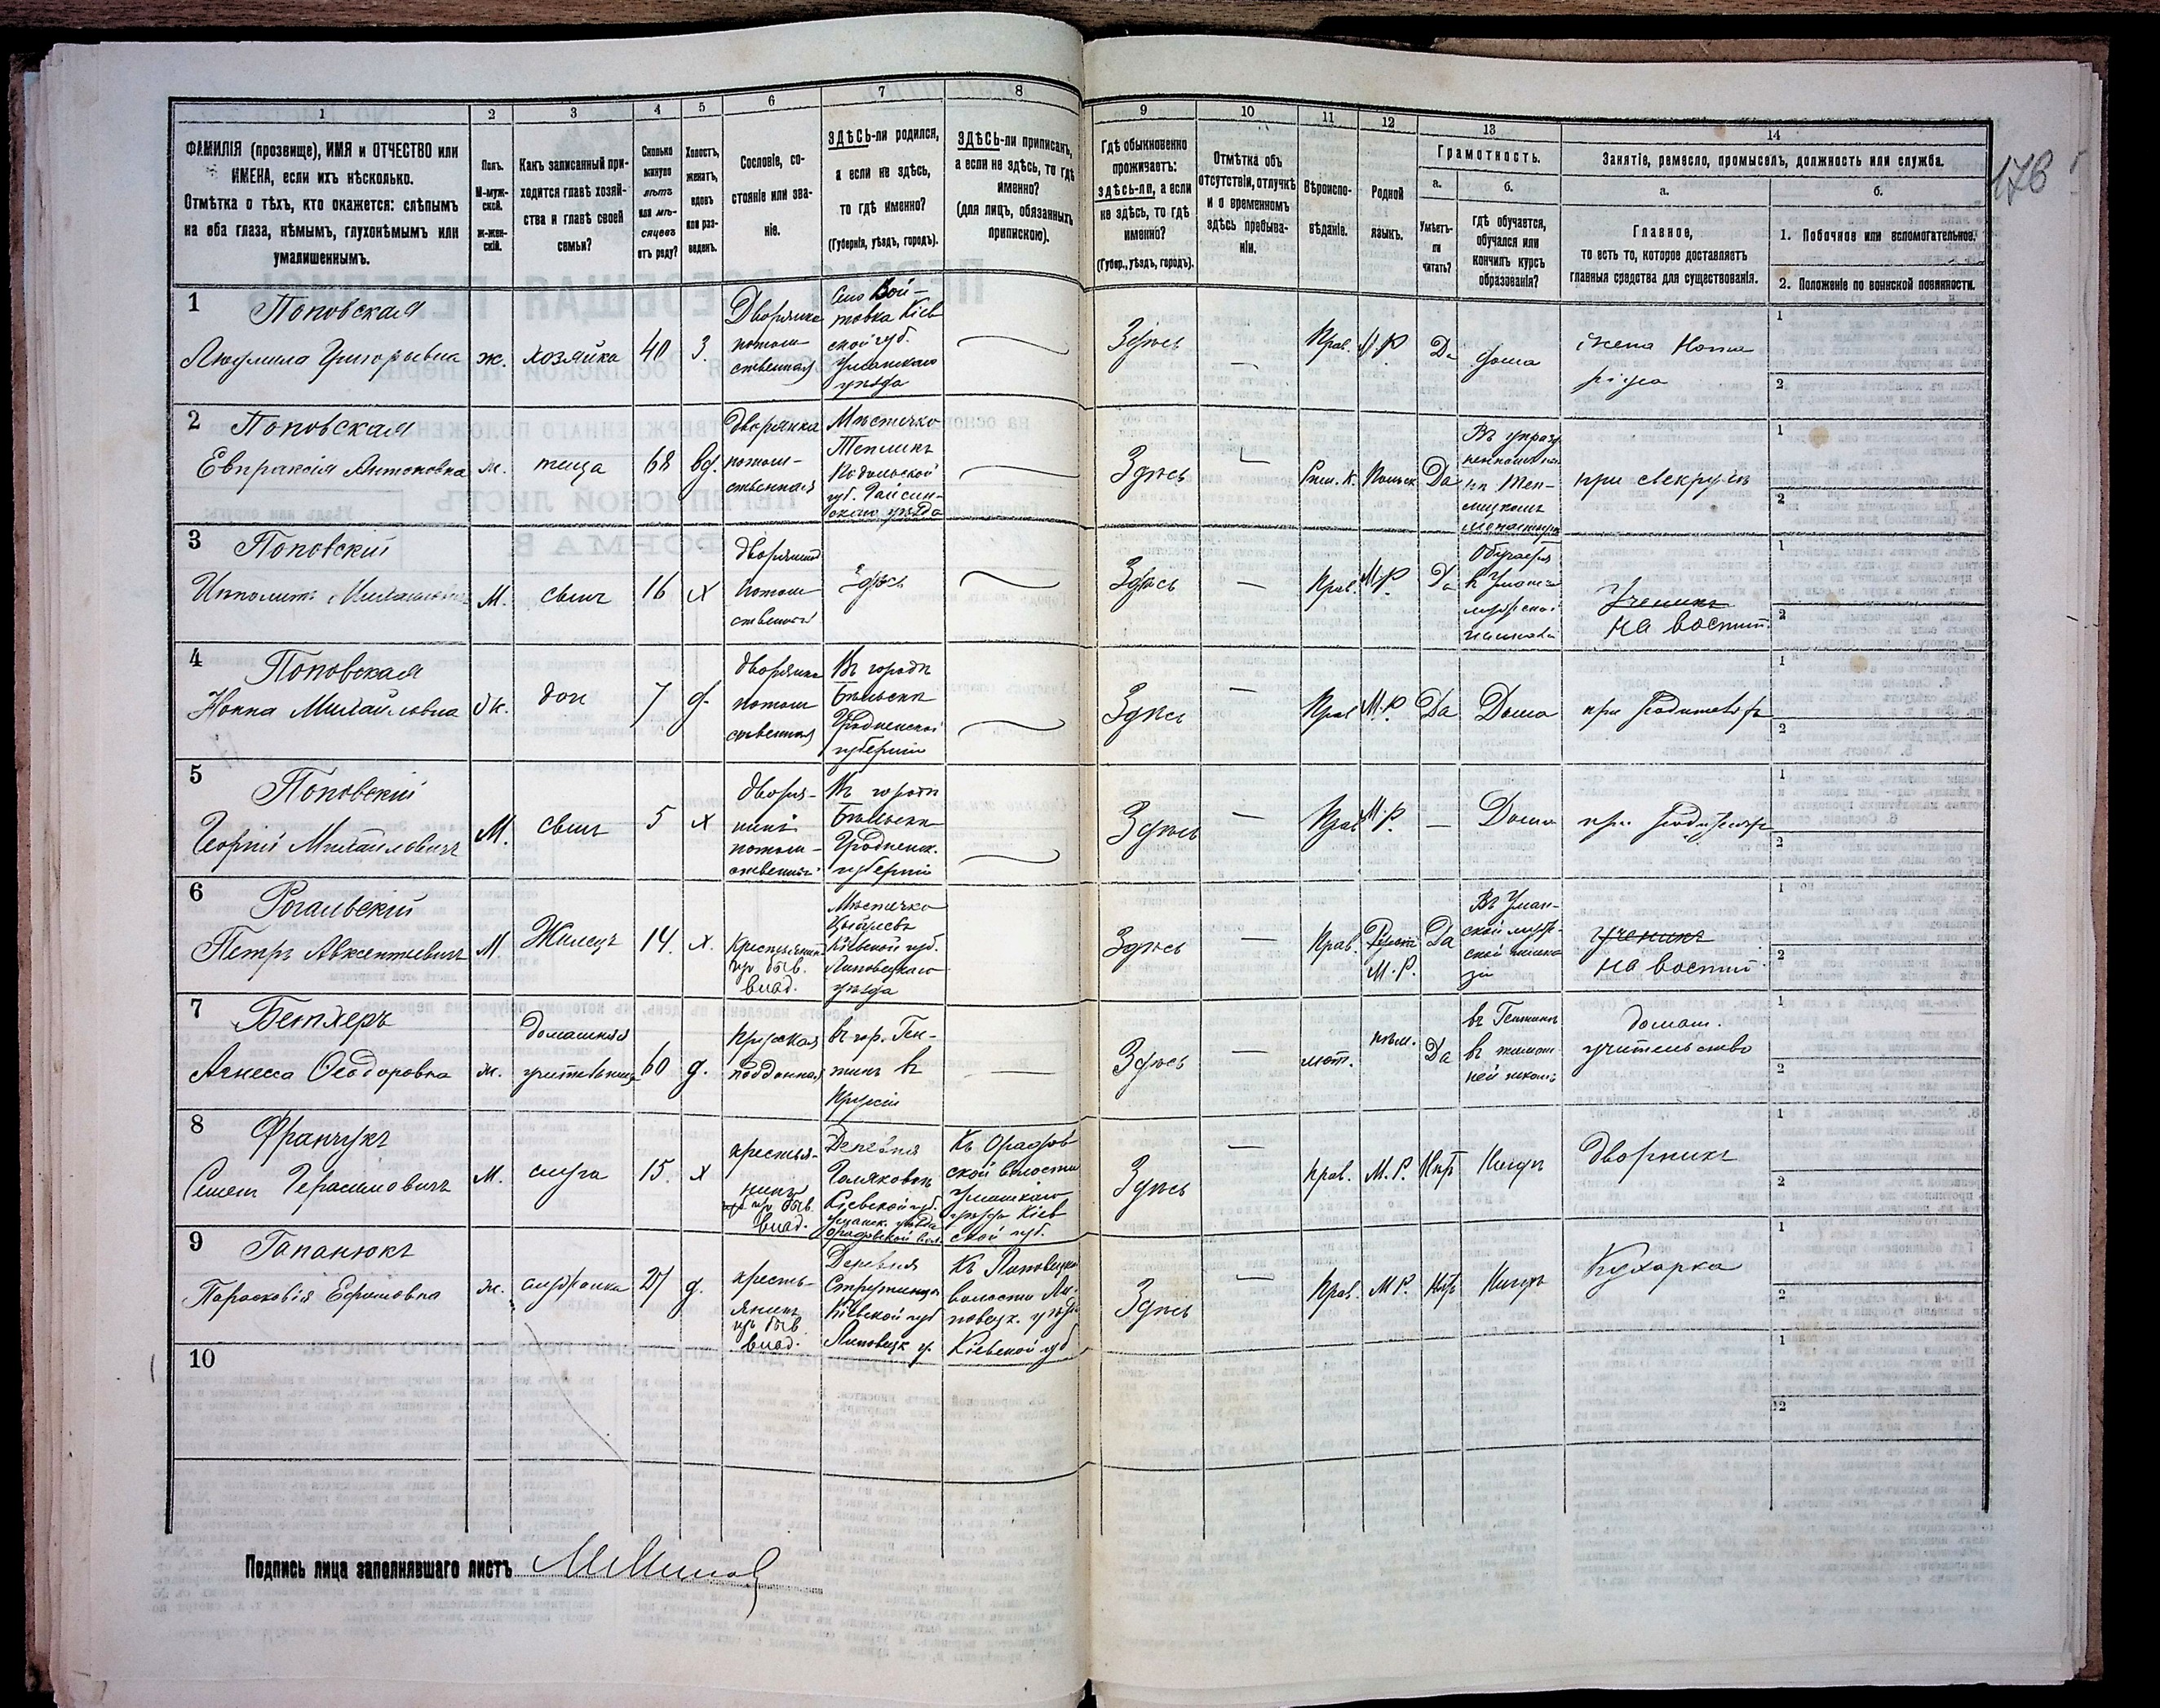 178
1 2 3 4 5 6 7 8 9 10 11 12 13 14
ФАМИЛІЯ (прозвище), ИМЯ и ОТЧЕСТВО или
ИМЕНА, если ихъ нѣсколько.
Отмѣтка о тѣхъ, кто окажется: слѣпымъ
на оба глаза, нѣмымъ, глухонѣмымъ или
умалишеннымъ.
Полъ.
М-муж-
ской.
Ж-жен-
скій.
Какъ записанный при-
ходится главѣ хозяй-
ства и главѣ своей
семьи?
Сколько
минуло
лѣтъ
или мѣ-
сяцевъ
отъ роду?
Холостъ,
женатъ,
вдовъ
или раз-
веденъ.
Сословіе, со-
стояніе или зва-
ніе.
ЗДѢСЬ-ли родился,
а если не здѣсь,
то гдѣ именно?
(Губернія, уѣздъ, городъ).
ЗДѢСЬ-ли приписанъ,
а если не здѣсь, то гдѣ
именно?
(для лицъ, обязанныхъ
припискою).
Гдѣ обыкновенно
проживаетъ:
здѣсь-ли, а если
не здѣсь, то гдѣ
именно?
(Губер., уѣздъ, городъ).
Отмѣтка объ
отсутствіи, отлучкѣ
и о временномъ
здѣсь пребыва-
ніи.
Вѣроиспо-
вѣданіе.
Родной
языкъ.
Грамотность.
а.
Умѣетъ-
ли
читать?
б.
Гдѣ обучается,
обучался или
кончилъ курсъ
образованія?
Занятіе, ремесло, промыселъ, должность или служба.
а.
Главное,
то есть то, которое доставляетъ
главныя средства для существованія.
б.
1. Побочное или вспомогательное.
2. Положеніе по воинской повинности.
1
Поповская
Людмила Григорьевна
ж.
хозяйка
40
З.
Дворянка
потом-
ственная
Село Вой-
товка Кіев
ской губ.
Уманскаго
уѣзда
Здѣсь
—
Прав.
М.Р
Да
дома
жена
1
2
2
Поповская
Евпраксія Антоновна
ж.
теща
68
вд.
дворянка
потом-
ственная
Мѣстечко
Тепликъ
Подольской
губ. Гайсин-
скаго уѣзда
Здѣсь
—
Рим. К.
Польск
Да
при свекрухѣ
1
2
3
Поповскій
Ипполитъ
М.
сынъ
16
х
потом
ственный
Здѣсь
Здѣсь
—
Прав.
М.Р.
Да
Ученикъ
на воспит.
1
2
4
Поповская
Нонна Михайловна
ж.
доч
7
д.
дворянка
потом
ственная
Въ городѣ
Бѣльскѣ
Гродненской
губерніи
Здѣсь
—
Прав
М.Р.
Да
Дома
при родителяхъ
1
2
5
Поповскій
Георгій Михайловичъ
М.
сынъ
5
х
дворя-
нинъ
потом-
ственный
Въ городѣ
Бѣльскѣ
Гродненск.
губерніи
Здѣсь
—
Прав
М.Р.
—
Дома
при родителяхъ
1
2
6
Рогальскій
Петръ Авксентіевичъ
М.
Жилецъ
14.
х.
Крестьянинъ
изъ быв.
влад.
Мѣстечко
Кіевской губ.
Липовецкаго
уѣзда
Здѣсь
—
Прав.
М.Р.
Да
Въ Уман-
ской
ученикъ
на воспит
1
2
7
Бетхеръ
Агнесса Ѳеодоровна
ж.
домашняя
учительница
60
д.
Прусская
подданная
въ гор.
въ
Пруссіи
—
Здѣсь
—
лют.
нѣм.
Да
домаш.
учительство
1
2
8
Франчукъ
Семенъ Герасимовичъ
М.
слуга
15.
х
крестья-
нинъ
изъ быв.
влад.
Деревня
Поляковкѣ
Кіевской губ.
Уманск. уѣзда
Орадовской вол.
Къ Орадов
ской волости
Уманскаго
уѣзда Кіев
ской губ.
Здѣсь
—
прав.
М.Р.
Нѣтъ
Нигдѣ
Дворникъ
1
2
9
Гапанюкъ
Парасковія Ефимовна
ж.
служанка
27
д.
кресть-
янинъ
изъ быв
влад.
Деревня
Кіевской губ
Липовецк у.
Къ Липовецкой
волости Ли-
повецк. уѣзда
Кіевской губ
Здѣсь
—
Прав.
М.Р.
Нѣтъ
Нигдѣ
Кухарка
1
2
10
1
2
Подпись лица заполнявшаго листъ